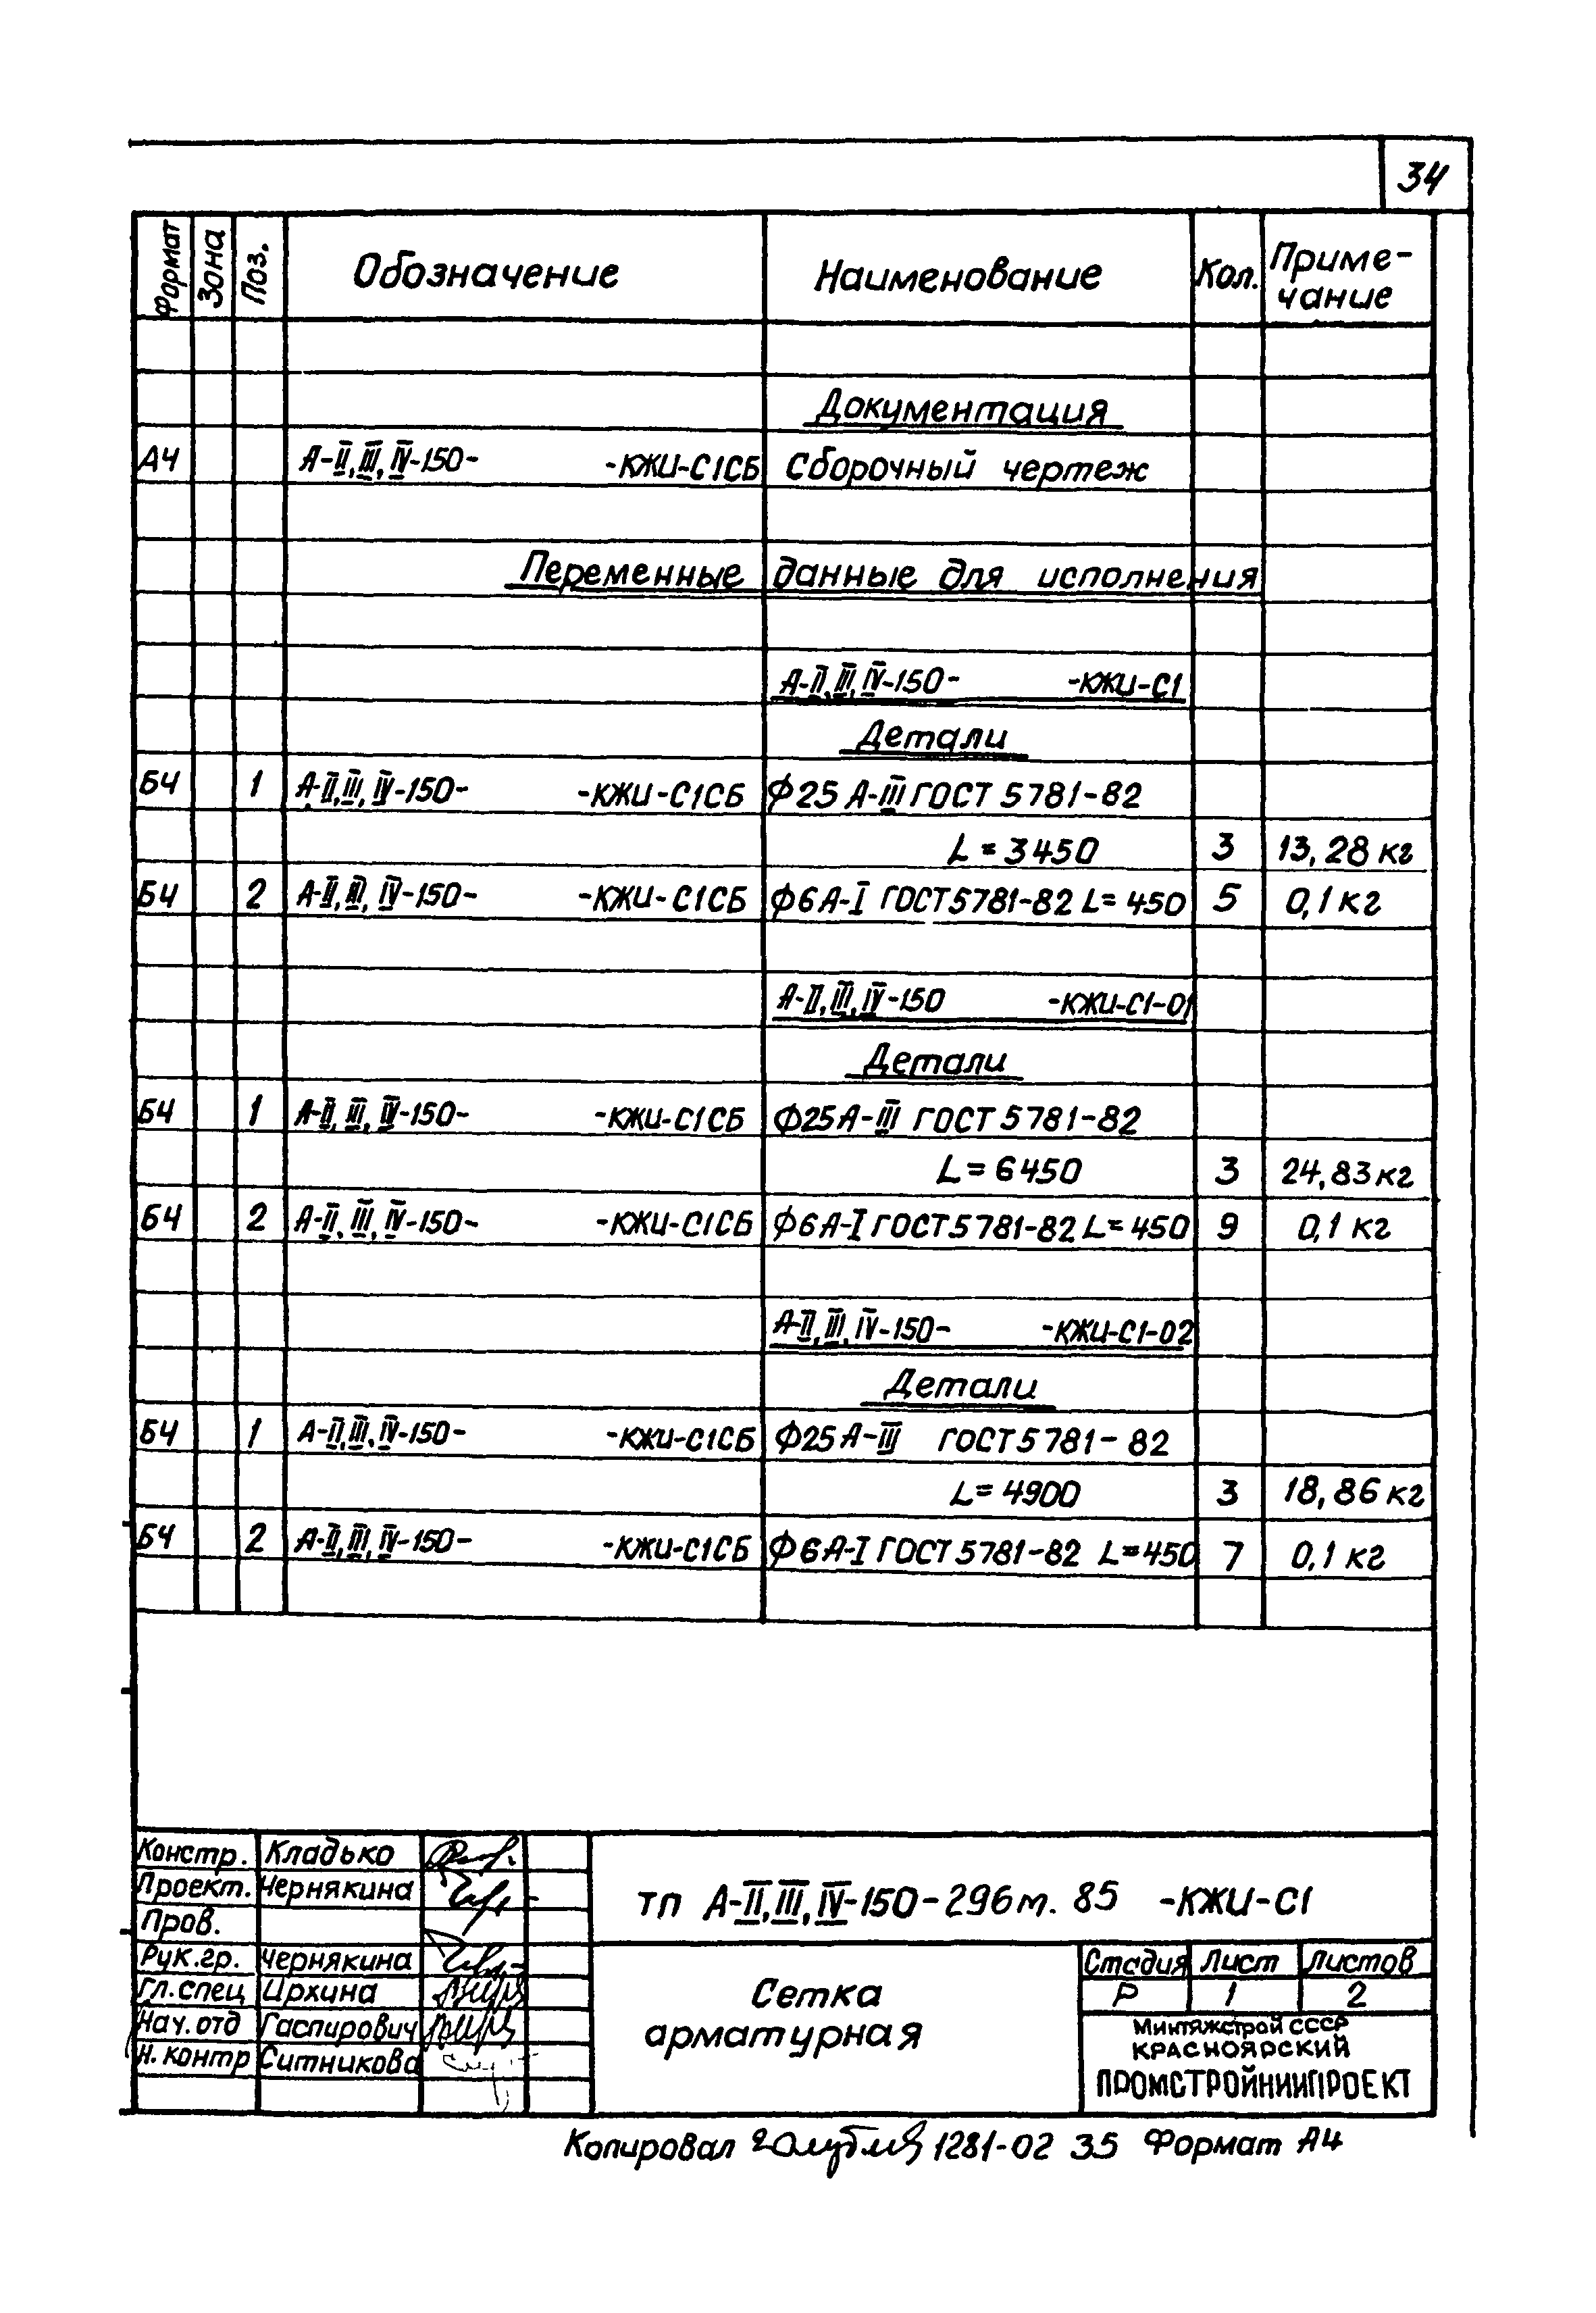 34
Формат Зона Поз. Обозначение Наименование Кол. Приме-
чание
Документация
А4 А-II, III, IV-150- -КЖИ-С1СБ Сборочный чертеж
Переменные данные для исполнения
А-II, III, IV-150- -КЖИ-С1
Детали
Б4 1 А-II, III, IV-150- -КЖИ-С1СБ Ф25 А-III ГОСТ 5781-82
L = 3450 3 13,28 кг
Б4 2 А-II, III, IV-150- -КЖИ-С1СБ Ф6 А-I ГОСТ 5781-82 L= 450 5 0,1 кг
А-II, III, IV-150 -КЖИ-С1-01
Детали
Б4 1 А-II, III, IV-150- -КЖИ-С1СБ Ф25 А-III ГОСТ 5781-82
L = 6450 3 24,83 кг
Б4 2 А-II, III, IV-150- -КЖИ-С1СБ Ф6 А-I ГОСТ 5781-82 L= 450 9 0,1 кг
А-II, III, IV-150- -КЖИ-С1-02
Детали
Б4 1 А-II, III, IV-150- -КЖИ-С1СБ Ф25 А-III ГОСТ 5781-82
L = 4900 3 18,86 кг
Б4 2 А-II, III, IV-150- -КЖИ-С1СБ Ф6 А-I ГОСТ 5781-82 L=450 7 0,1 кг
Констр. Кладько
Проект. Чернякина
Пров.
Рук.гр. Чернякина
Гл.спец Ирхина
Нач.отд Гаспирович
Н.контр Ситникова
тп А-II, III, IV-150-296м. 85 -КЖИ-С1
Сетка
арматурная
Стадия Лист Листов
Р 1 2
Минтяжстрой СССР
КРАСНОЯРСКИЙ
ПРОМСТРОЙНИИПРОЕКТ
Копировал 1281-02 35 Формат А4